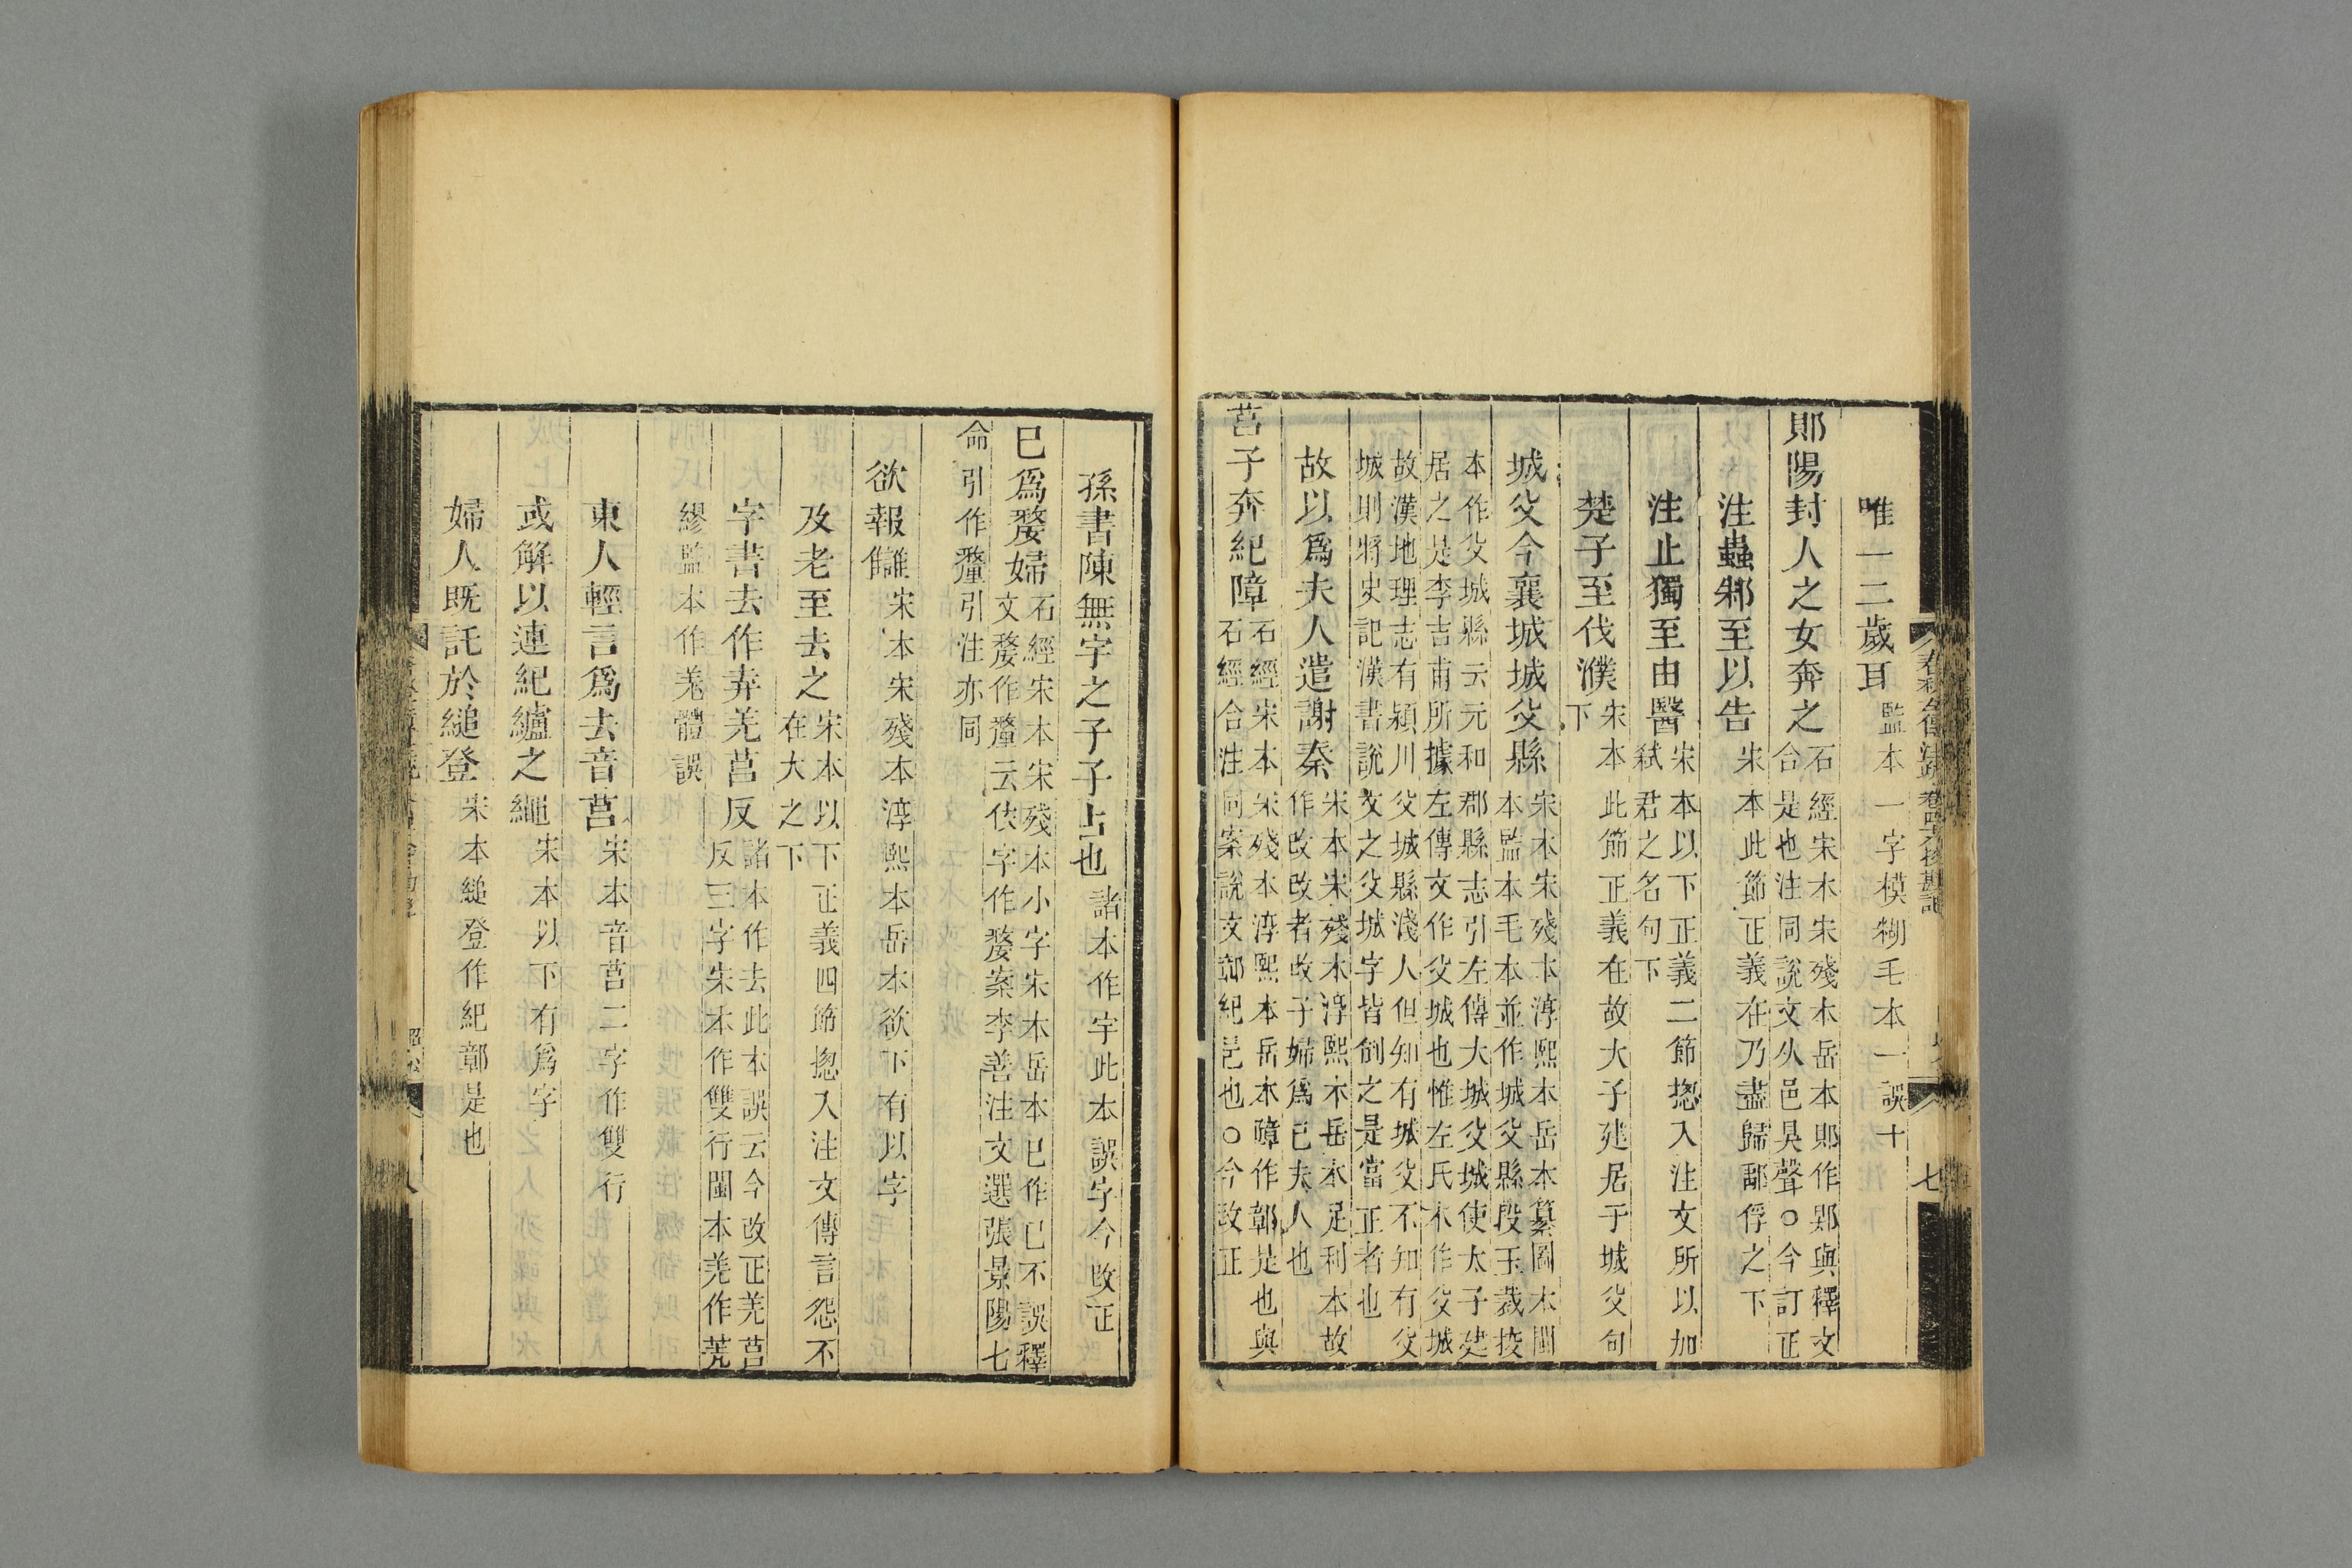 唯一二歲耳監本一字模糊毛本一誤十
郥陽封人之女奔之石經宋本宋殘本岳本郥作郹與釋文
合是也注同說文从邑狊聲○今訂正
注蟲邾至以告宋本此節正義在乃盡歸鄅俘之下
注止獨至由醫宋本以下正義二節揔入注文所以加
弒君之名句下
楚子至伐濮宋本此節正義在故大子建居于城父句
下
城父今襄城城父縣宋本宋殘本淳熙本岳本纂圖本閩
本監本毛本並作城父縣段玉裁挍
本作父城縣云元和郡縣志引左傳大城父城使太子建
居之是李吉甫所據左傳文作父城也惟左氏本作父城
故漢地理志有潁川父城縣淺人但知有城父不知有父
城則將史記漢書說文之父城字皆倒之是當正者也
故以爲夫人遣謝秦宋本宋殘本淳熙本岳本足利本故
作改改者改子婦爲已夫人也
莒子奔紀障石經宋本宋殘本淳熙本岳本障作鄣是也與
石經合注同案說文鄣紀邑也○今改正
孫書陳無宇之子子占也諸本作宇此本誤字今改正
已爲嫠婦石經宋本宋殘本小字宋本岳本已作巳不誤釋
文嫠作釐云依字作嫠案李善注文選張景陽七
命引作釐引注亦同
欲報讎宋本宋殘本淳熙本岳本欲下有以字
及老至去之宋本以下正義四節揔入注文傳言怨不
在大之下
字書去作弆羌莒反諸本作去此本誤云今改正羌莒
反三字宋本作雙行閩本羌作羗
繆監本作羌體誤
東人輕言爲去音莒宋本音莒二字作雙行
或解以連紀纑之繩宋本以下有爲字
婦人既託於縋登宋本縋登作紀鄣是也